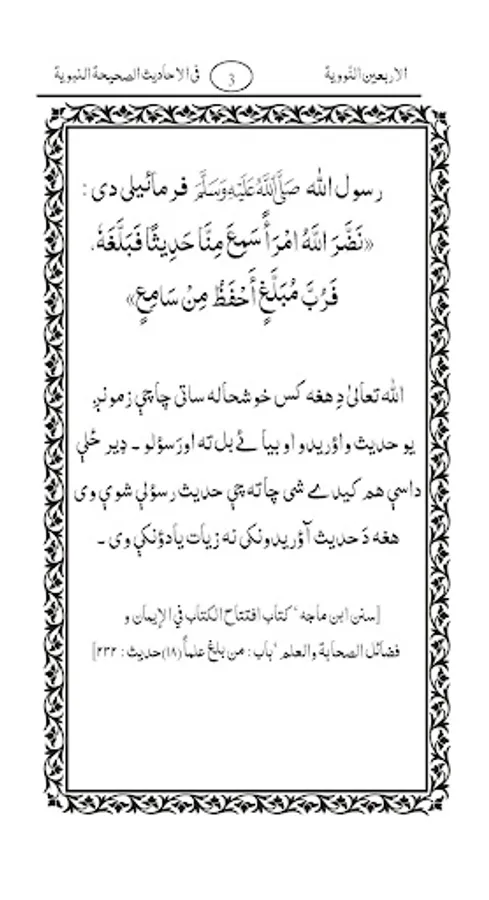 الاربعین النَّوویة 3 فی الاحادیث الصحیحة النبویة
رسول الله صَلَّى اللهُ عَلَيْهِ وَسَلَّمَ فرمائیلی دی:
«نَضَّرَ اللَّهُ امْرَأً سَمِعَ مِنَّا حَدِيثًا فَبَلَّغَهُ،
فَرُبَّ مُبَلَّغٍ أَحْفَظُ مِنْ سَامِعٍ»
الله تعالیٰ دِ هغه کس خوشحاله ساتی چاچې زمونږ
یو حدیث واؤریدو او بیا ئے بل ته اورَسؤلو ۔ ډیر ځلې
داسې هم کیدے شی چا ته چې حدیث رسؤلې شوې وی
هغه دَ حدیث آؤریدونکی نه زیات یادؤنکې وی ۔
[سنن ابن ماجه ‘ کتاب افتتاح الکتاب في الإیمان و
فضائل الصحابة والعلم ‘باب: من بلغ علماً (۱۸) حدیث: ۲۳۲]